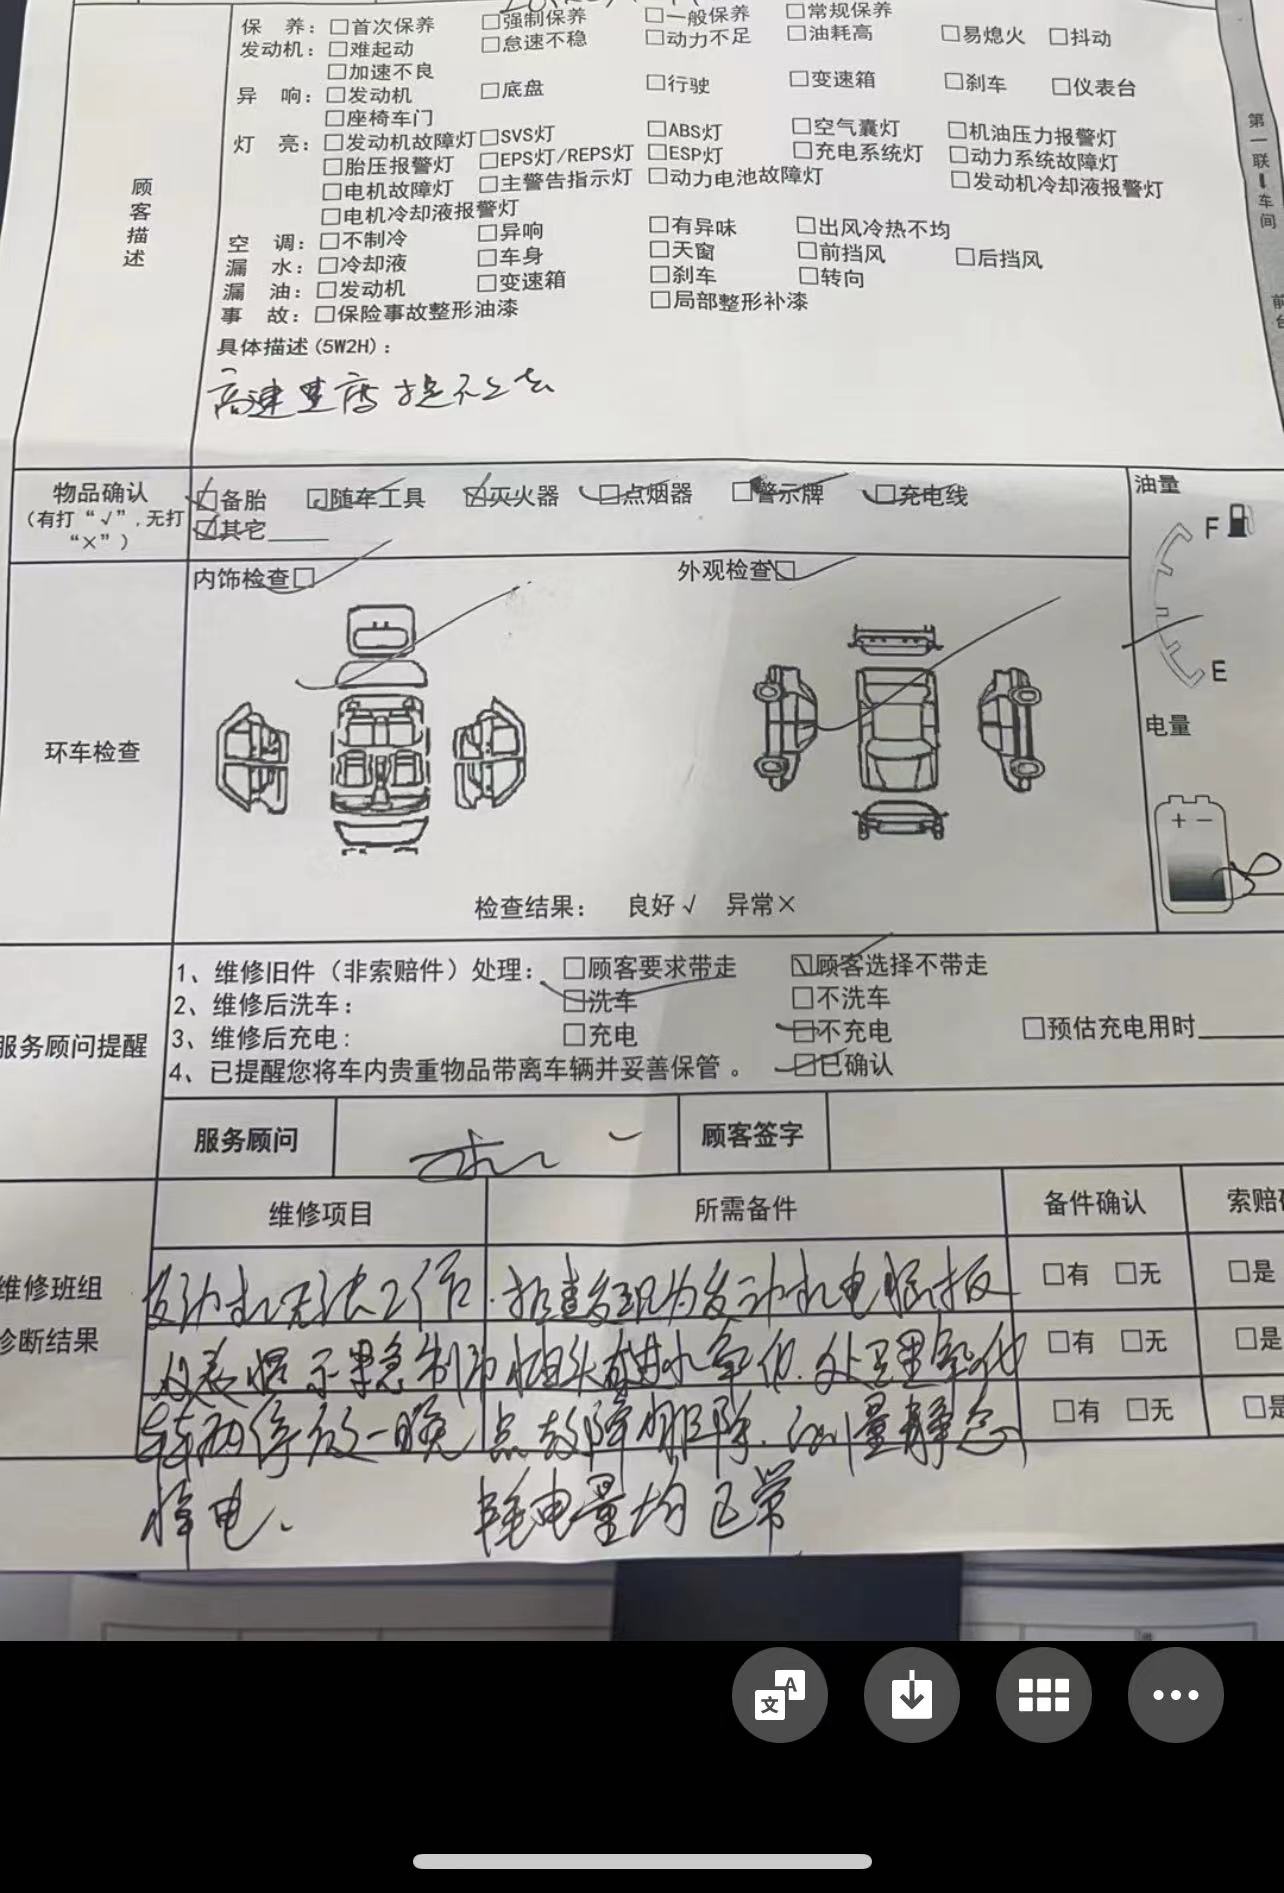 保 养：□首次保养 □强制保养 □一般保养 □常规保养
发动机：□难起动 □怠速不稳 □动力不足 □油耗高 □易熄火 □抖动
□加速不良
异 响：□发动机 □底盘 □行驶 □变速箱 □刹车 □仪表台
□座椅车门
灯 亮：□发动机故障灯 □SVS灯 □ABS灯 □空气囊灯 □机油压力报警灯
□胎压报警灯 □EPS灯/REPS灯 □ESP灯 □充电系统灯 □动力系统故障灯
□电机故障灯 □主警告指示灯 □动力电池故障灯 □发动机冷却液报警灯
□电机冷却液报警灯
空 调：□不制冷 □异响 □有异味 □出风冷热不均
漏 水：□冷却液 □车身 □天窗 □前挡风 □后挡风
漏 油：□发动机 □变速箱 □刹车 □转向
事 故：□保险事故整形油漆 □局部整形补漆
顾客描述
具体描述(5W2H)：
高速速度提不上去
第一联 车间
物品确认
（有打“√”,无打“×”）
□备胎 □随车工具 □灭火器 □点烟器 □警示牌 □充电线
□其它____
油量
F
E
电量
+ −
环车检查
内饰检查□ 外观检查□
检查结果： 良好√ 异常×
服务顾问提醒
1、维修旧件（非索赔件）处理：□顾客要求带走 □顾客选择不带走
2、维修后洗车： □洗车 □不洗车
3、维修后充电： □充电 □不充电 □预估充电用时____
4、已提醒您将车内贵重物品带离车辆并妥善保管。 □已确认
服务顾问 顾客签字
维修班组
诊断结果
维修项目 所需备件 备件确认 索赔
发动机无法工作. 检查发现为发动机电脑板 □有 □无 □是
仪表提示紧急制动 插头有水氧化.处理氧化 □有 □无 □是
车辆停放一晚 点故障排除.测量静态 □有 □无 □是
掉电. 耗电量均正常